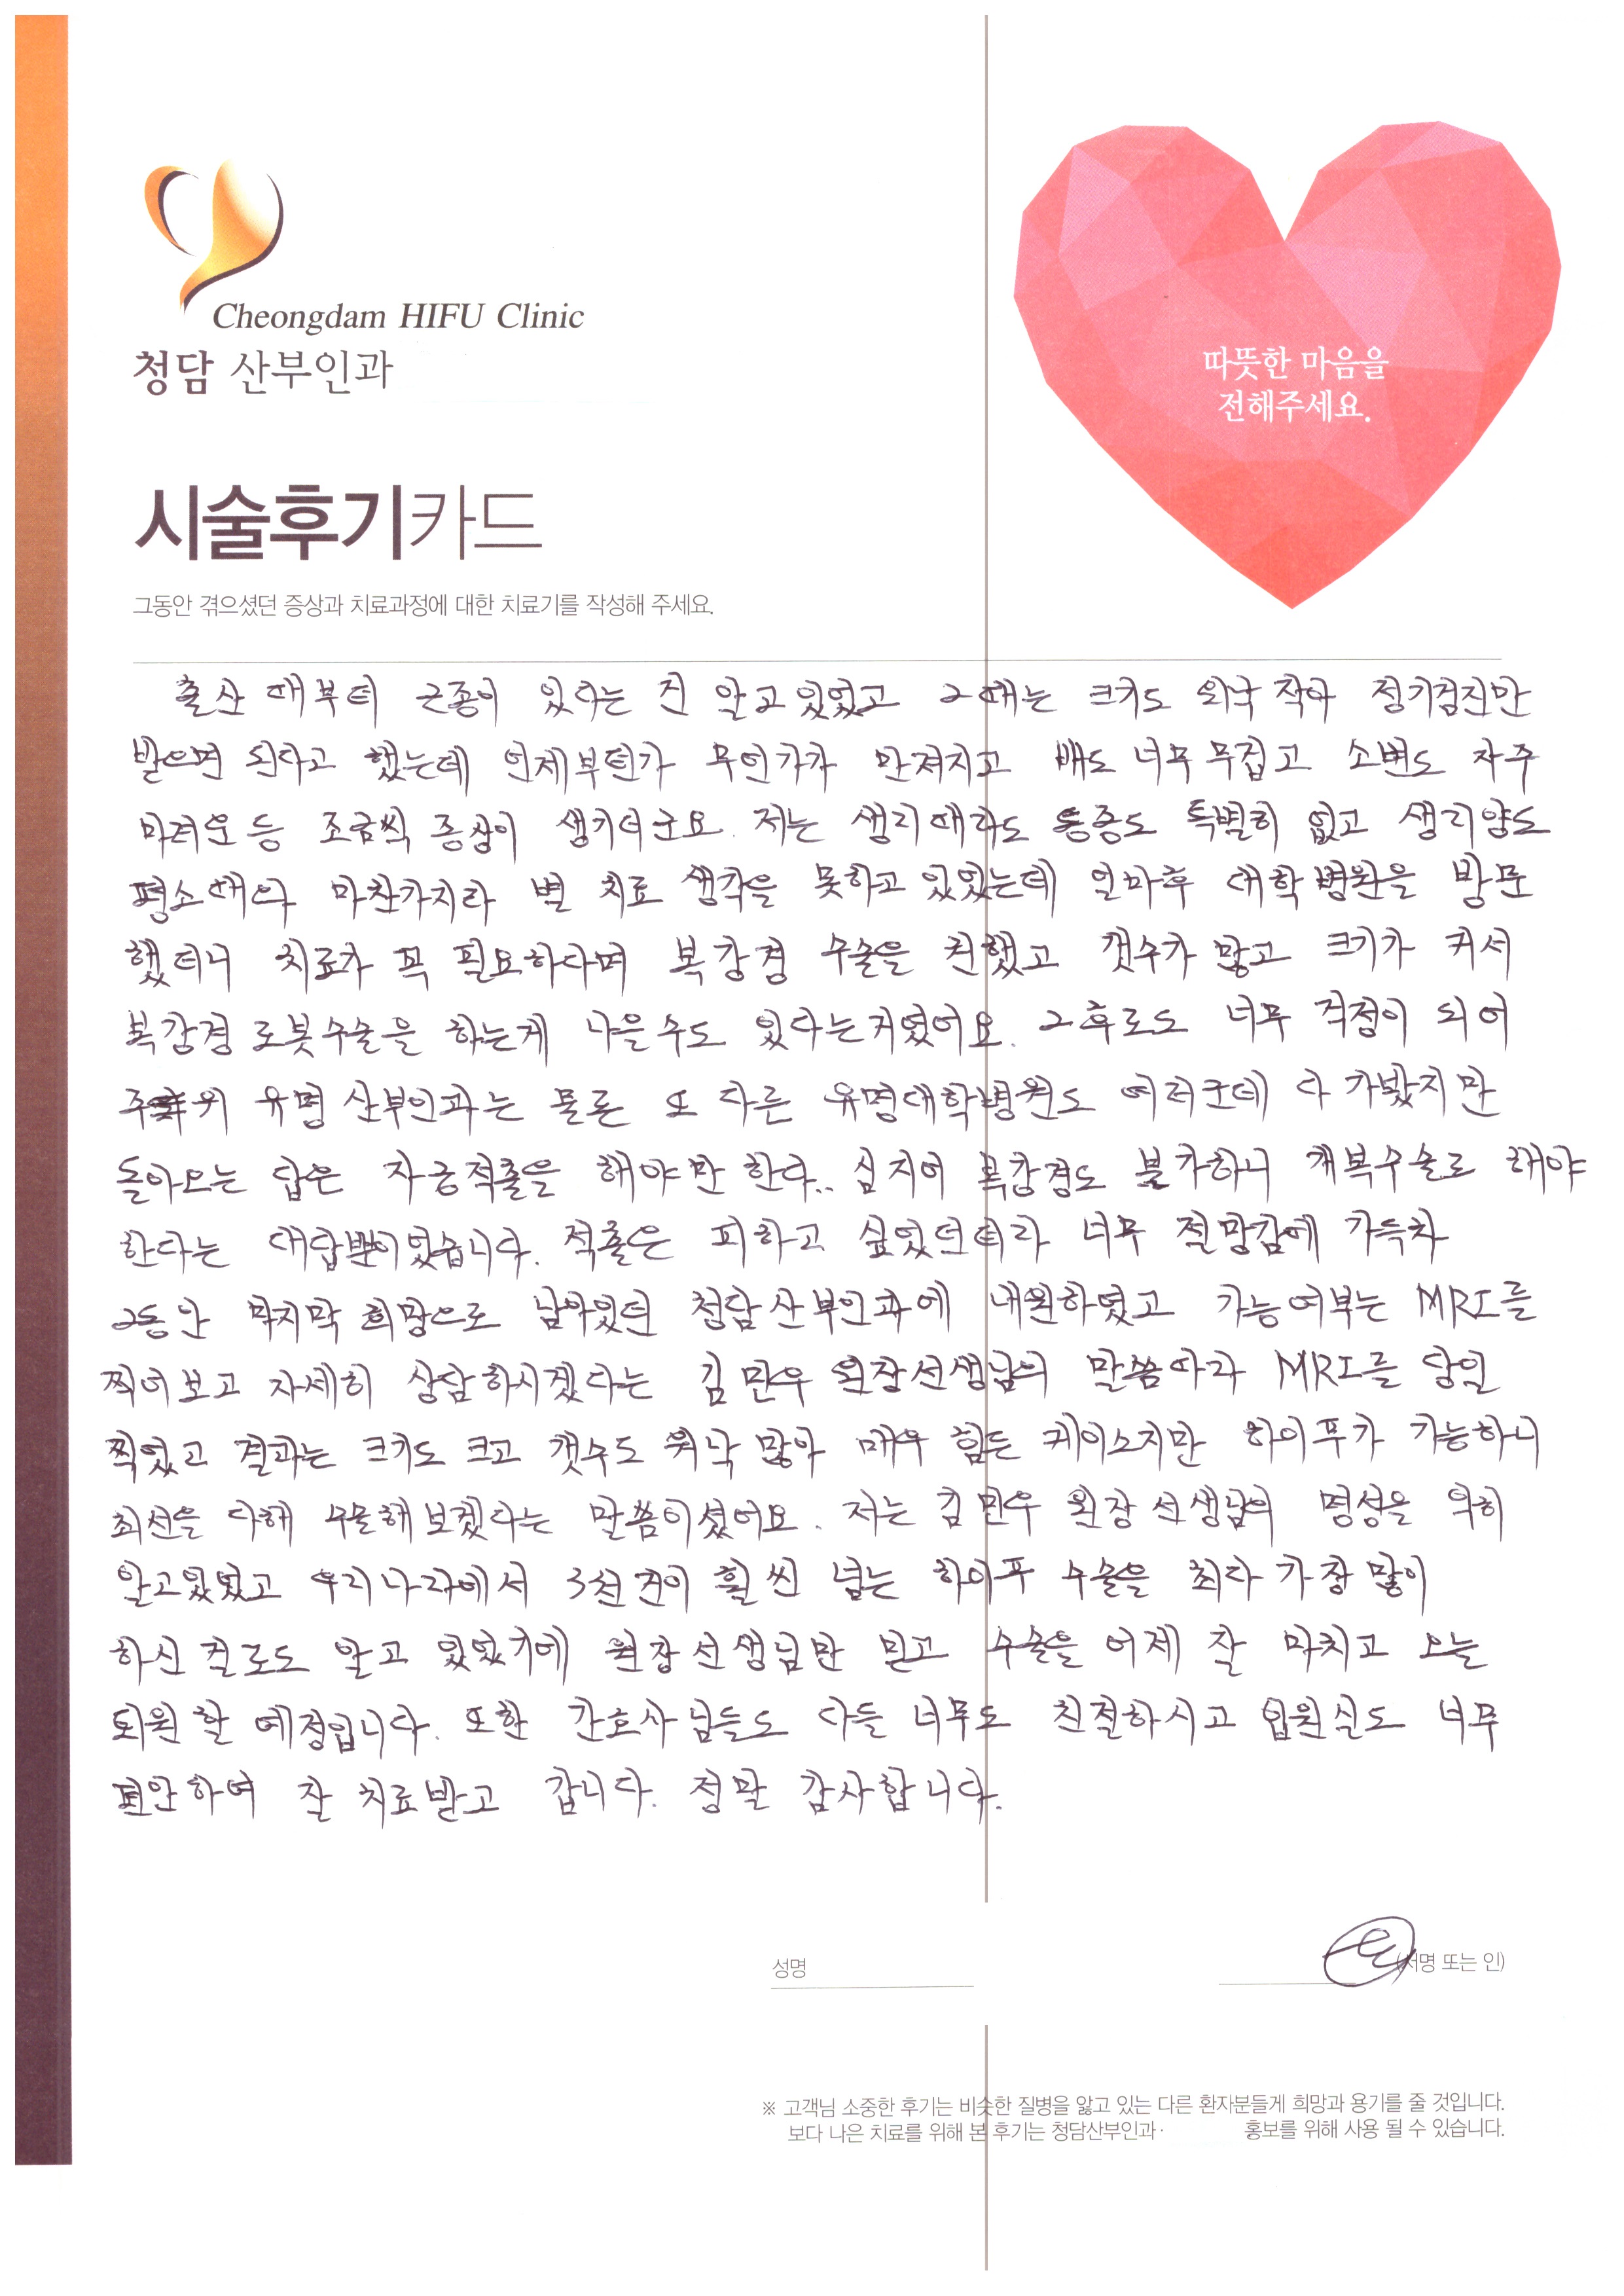 Cheongdam HIFU Clinic
청담 산부인과
따뜻한 마음을
전해주세요.
시술후기카드
그동안 겪으셨던 증상과 치료과정에 대한 치료기를 작성해 주세요.
출산 때부터 근종이 있다는 건 알고있었고 그때는 크기도 워낙 작아 정기검진만
받으면 된다고 했는데 언제부턴가 무언가가 만져지고 배도 너무 무겁고 소변도 자주
마려운 등 조금씩 증상이 생기더군요. 저는 생리때라도 통증도 특별히 없고 생리양도
평소때와 마찬가지라 별 치료 생각을 못하고 있었는데 얼마후 대학병원을 방문
했더니 치료가 꼭 필요하다며 복강경 수술을 권했고 갯수가 많고 크기가 커서
복강경 로봇수술을 하는게 나을수도 있다는거였어요. 그후로도 너무 걱정이 되어
주위 유명 산부인과는 물론 또 다른 유명대학병원도 여러군데 다 가봤지만
돌아오는 답은 자궁적출을 해야만 한다.. 심지어 복강경도 불가하니 개복수술로 해야
한다는 대답뿐이었습니다. 적출은 피하고 싶었던터라 너무 절망감에 가득차
그동안 마지막 희망으로 남아있던 청담산부인과에 내원하였고 가능여부는 MRI를
찍어보고 자세히 상담하시겠다는 김민우 원장선생님의 말씀따라 MRI를 당일
찍었고 결과는 크기도 크고 갯수도 워낙 많아 매우 힘든 케이스지만 하이푸가 가능하니
최선을 다해 수술해보겠다는 말씀이셨어요. 저는 김민우 원장선생님의 명성을 익히
알고있었고 우리나라에서 3천건이 훨씬 넘는 하이푸 수술을 최다 가장 많이
하신 걸로도 알고 있었기에 원장선생님만 믿고 수술을 어제 잘 마치고 오늘
퇴원할 예정입니다. 또한 간호사님들도 다들 너무도 친절하시고 입원실도 너무
편안하여 잘 치료받고 갑니다. 정말 감사합니다.
성명
(서명 또는 인)
※ 고객님 소중한 후기는 비슷한 질병을 앓고 있는 다른 환자분들게 희망과 용기를 줄 것입니다.
보다 나은 치료를 위해 본 후기는 청담산부인과· 홍보를 위해 사용 될 수 있습니다.